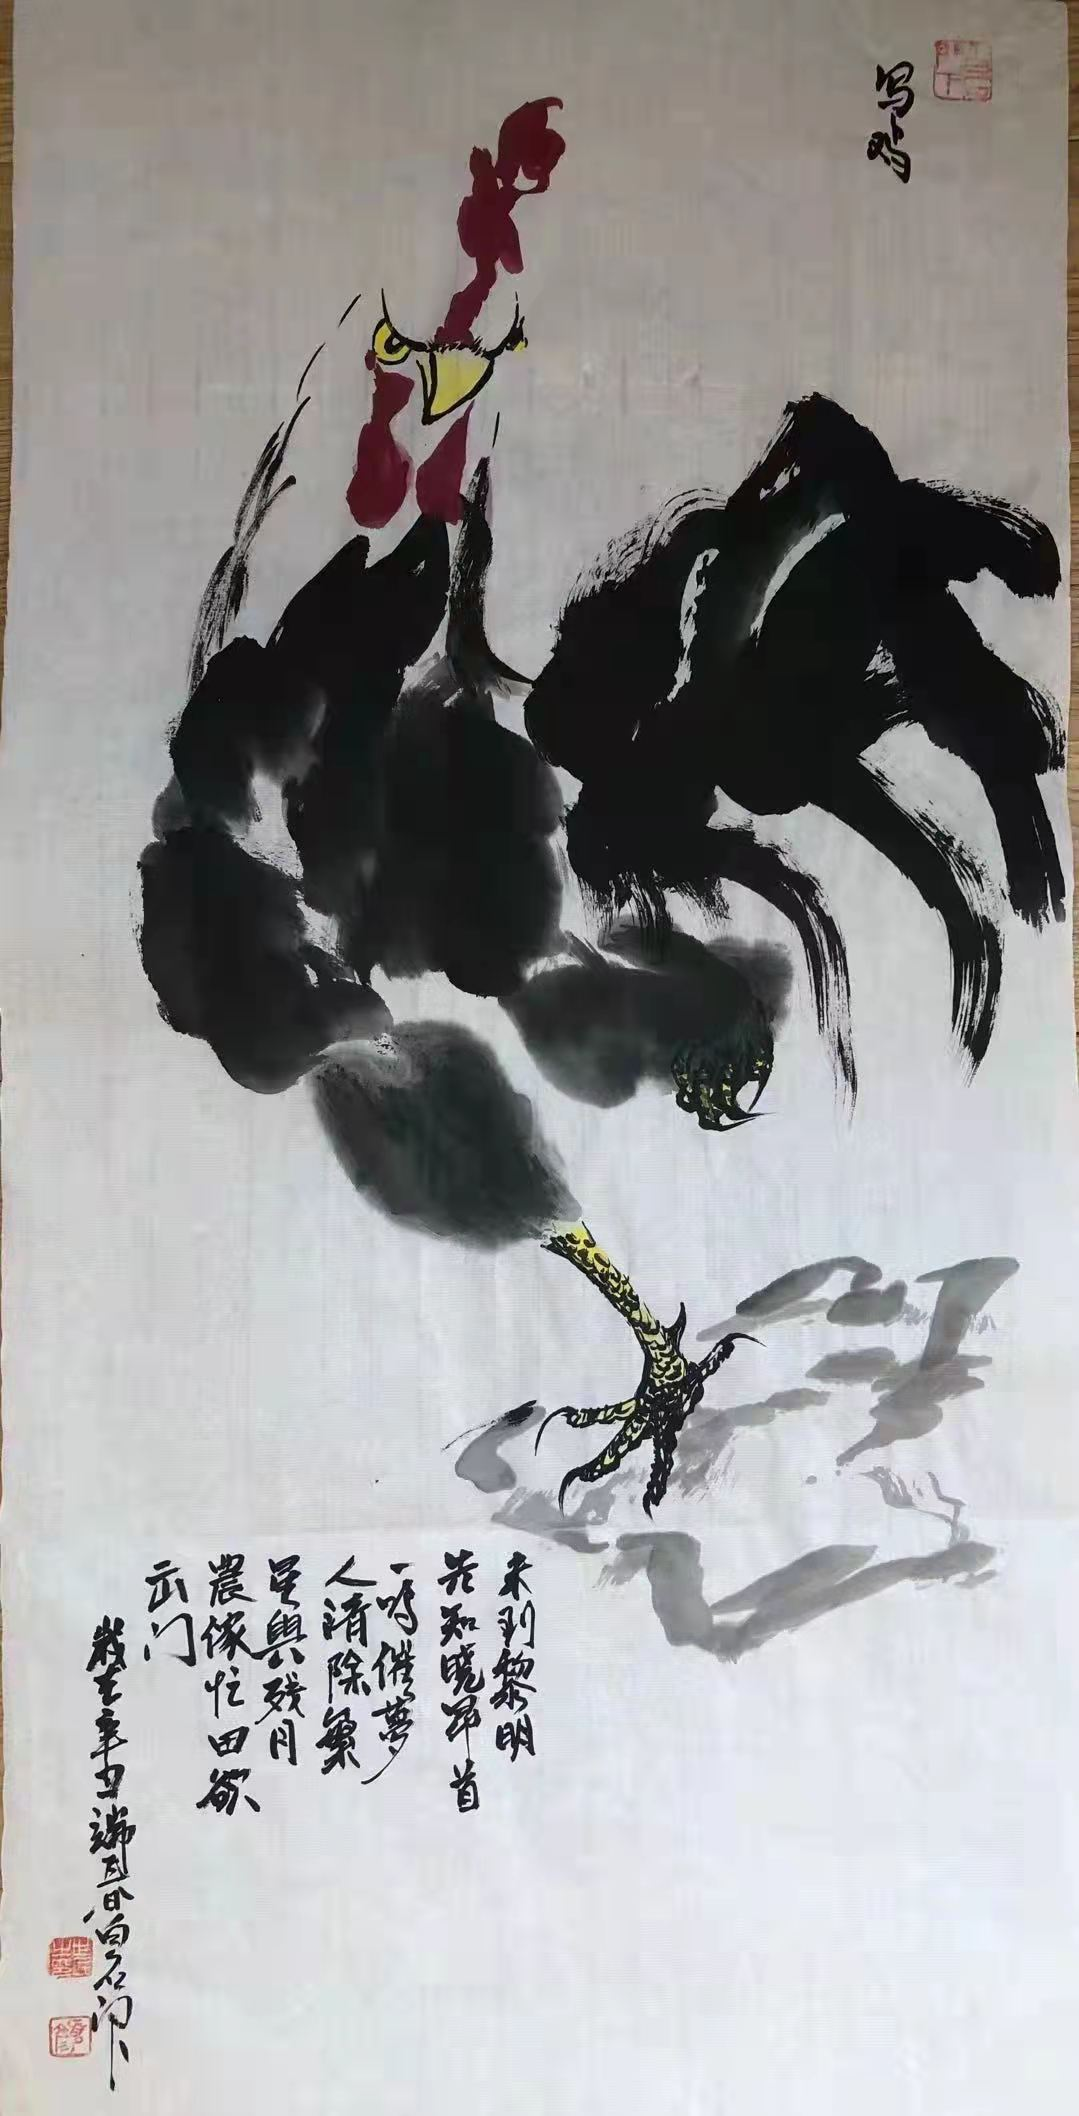 写鸡
未到黎明
若知晓昂首
一鸣催夢
人清除氣
星與残月
農傢忙田欲
出门
歲在辛丑端月春白石门下